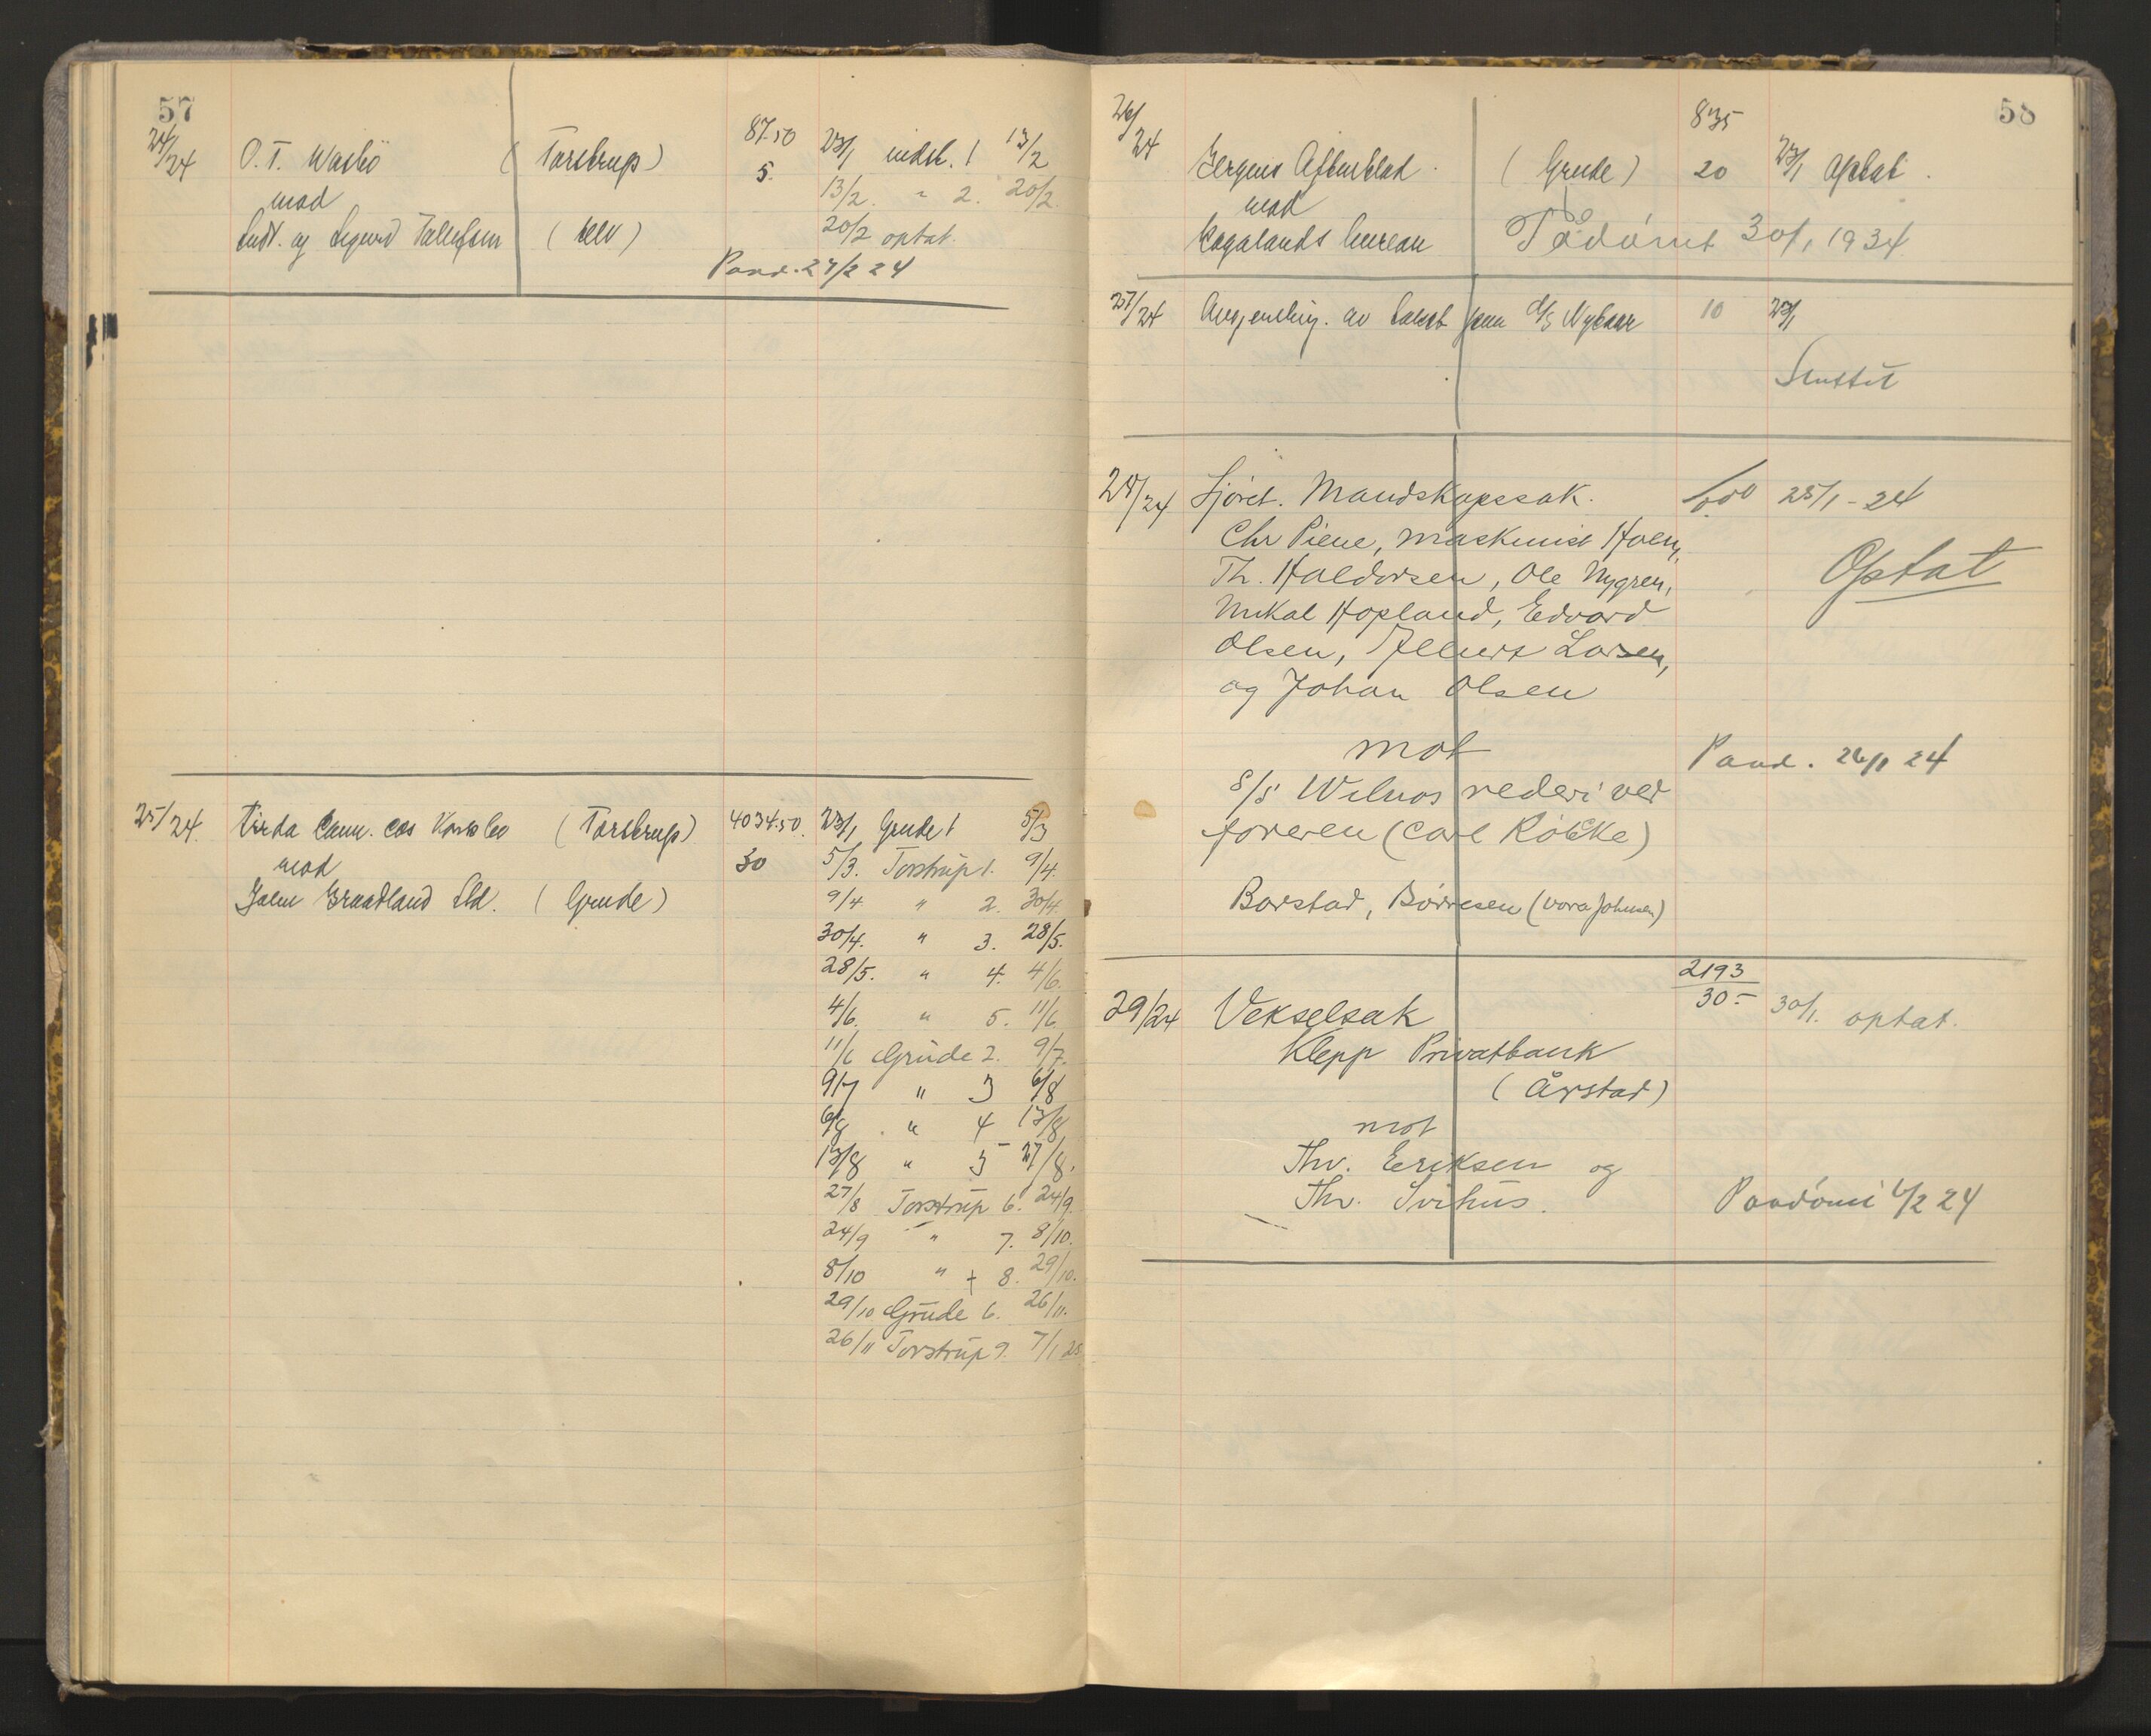 57
24/24 O. T. Wasbö ( Torstrup ) 87.50 23/1 indst. 1 13/2
mad 5. 13/2. " 2. 20/2.
og Sigurd Tollefsen ( selv ) 20/2 optat.
Paad. 27/2 24
25/24. Comm. cos ( Torstrup ) 4034.50. 23/1 Grude 1 5/3
mad 30 5/3. Torstrup 1. 9/4.
Graatland ( Grude ) 9/4 " 2. 30/4.
30/4. " 3. 28/5.
28/5. " 4. 4/6.
4/6. " 5. 11/6.
11/6 Grude 2. 9/7.
9/7 " 3 6/8
6/8 " 4 13/8
13/8 " 5 27/8.
27/8 Torstrup 6. 24/9.
24/9 " 7. 8/10.
8/10 " + 8. 29/10.
29/10 Grude 6. 26/11.
26/11 Torstrup 9. 7/1 25
58
26/24 835
Aftenblad ( Grude ) 20 23/1 optat.
mad
Rogalands bureau Pådömt 30/1 1934
27/24 av fra 10 23/1
Sluttet
28/24 Sjöret. Mandskapssak. 25/1 - 24
Chr Piene, maskinist Holm,
Th. Haldorsen, Ole Nygren, Optat
Mikal Hopland, Edvard
Olsen, Larsen,
og Johan Olsen
mot Paad. 26/1 24
S/S Wilnos rederi ved
föreren (Carl Röbke)
Borstad, Börresen (vara Johnsen)
2193
29/24 Vekselsak 30.- 30/1. optat.
Klepp Privatbank
(Årstad)
mot
Thv. Eriksen og
Thv. Svihus. Paadömt 6/2 24